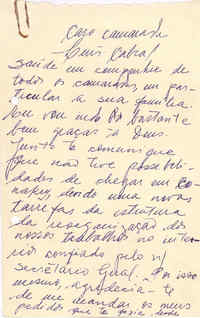 Caro camarada
Luis Cabral
Saúde em companhia de
todos os camaradas, em par-
ticular a sua família.
Eu vou indo bastante
bem graças a Deus.
Junto te comunico que
não tive possebili-
dades de chegar em Co-
nakry, devido uma novas
tarefas da estrutura
da reorganização dos
nossos trabalhos no inte-
rio confiado pelo n/
Secretário Geral. Por isso
mesmo, agradecia-te
de me mandar os meus
pedidos que te fazia desde